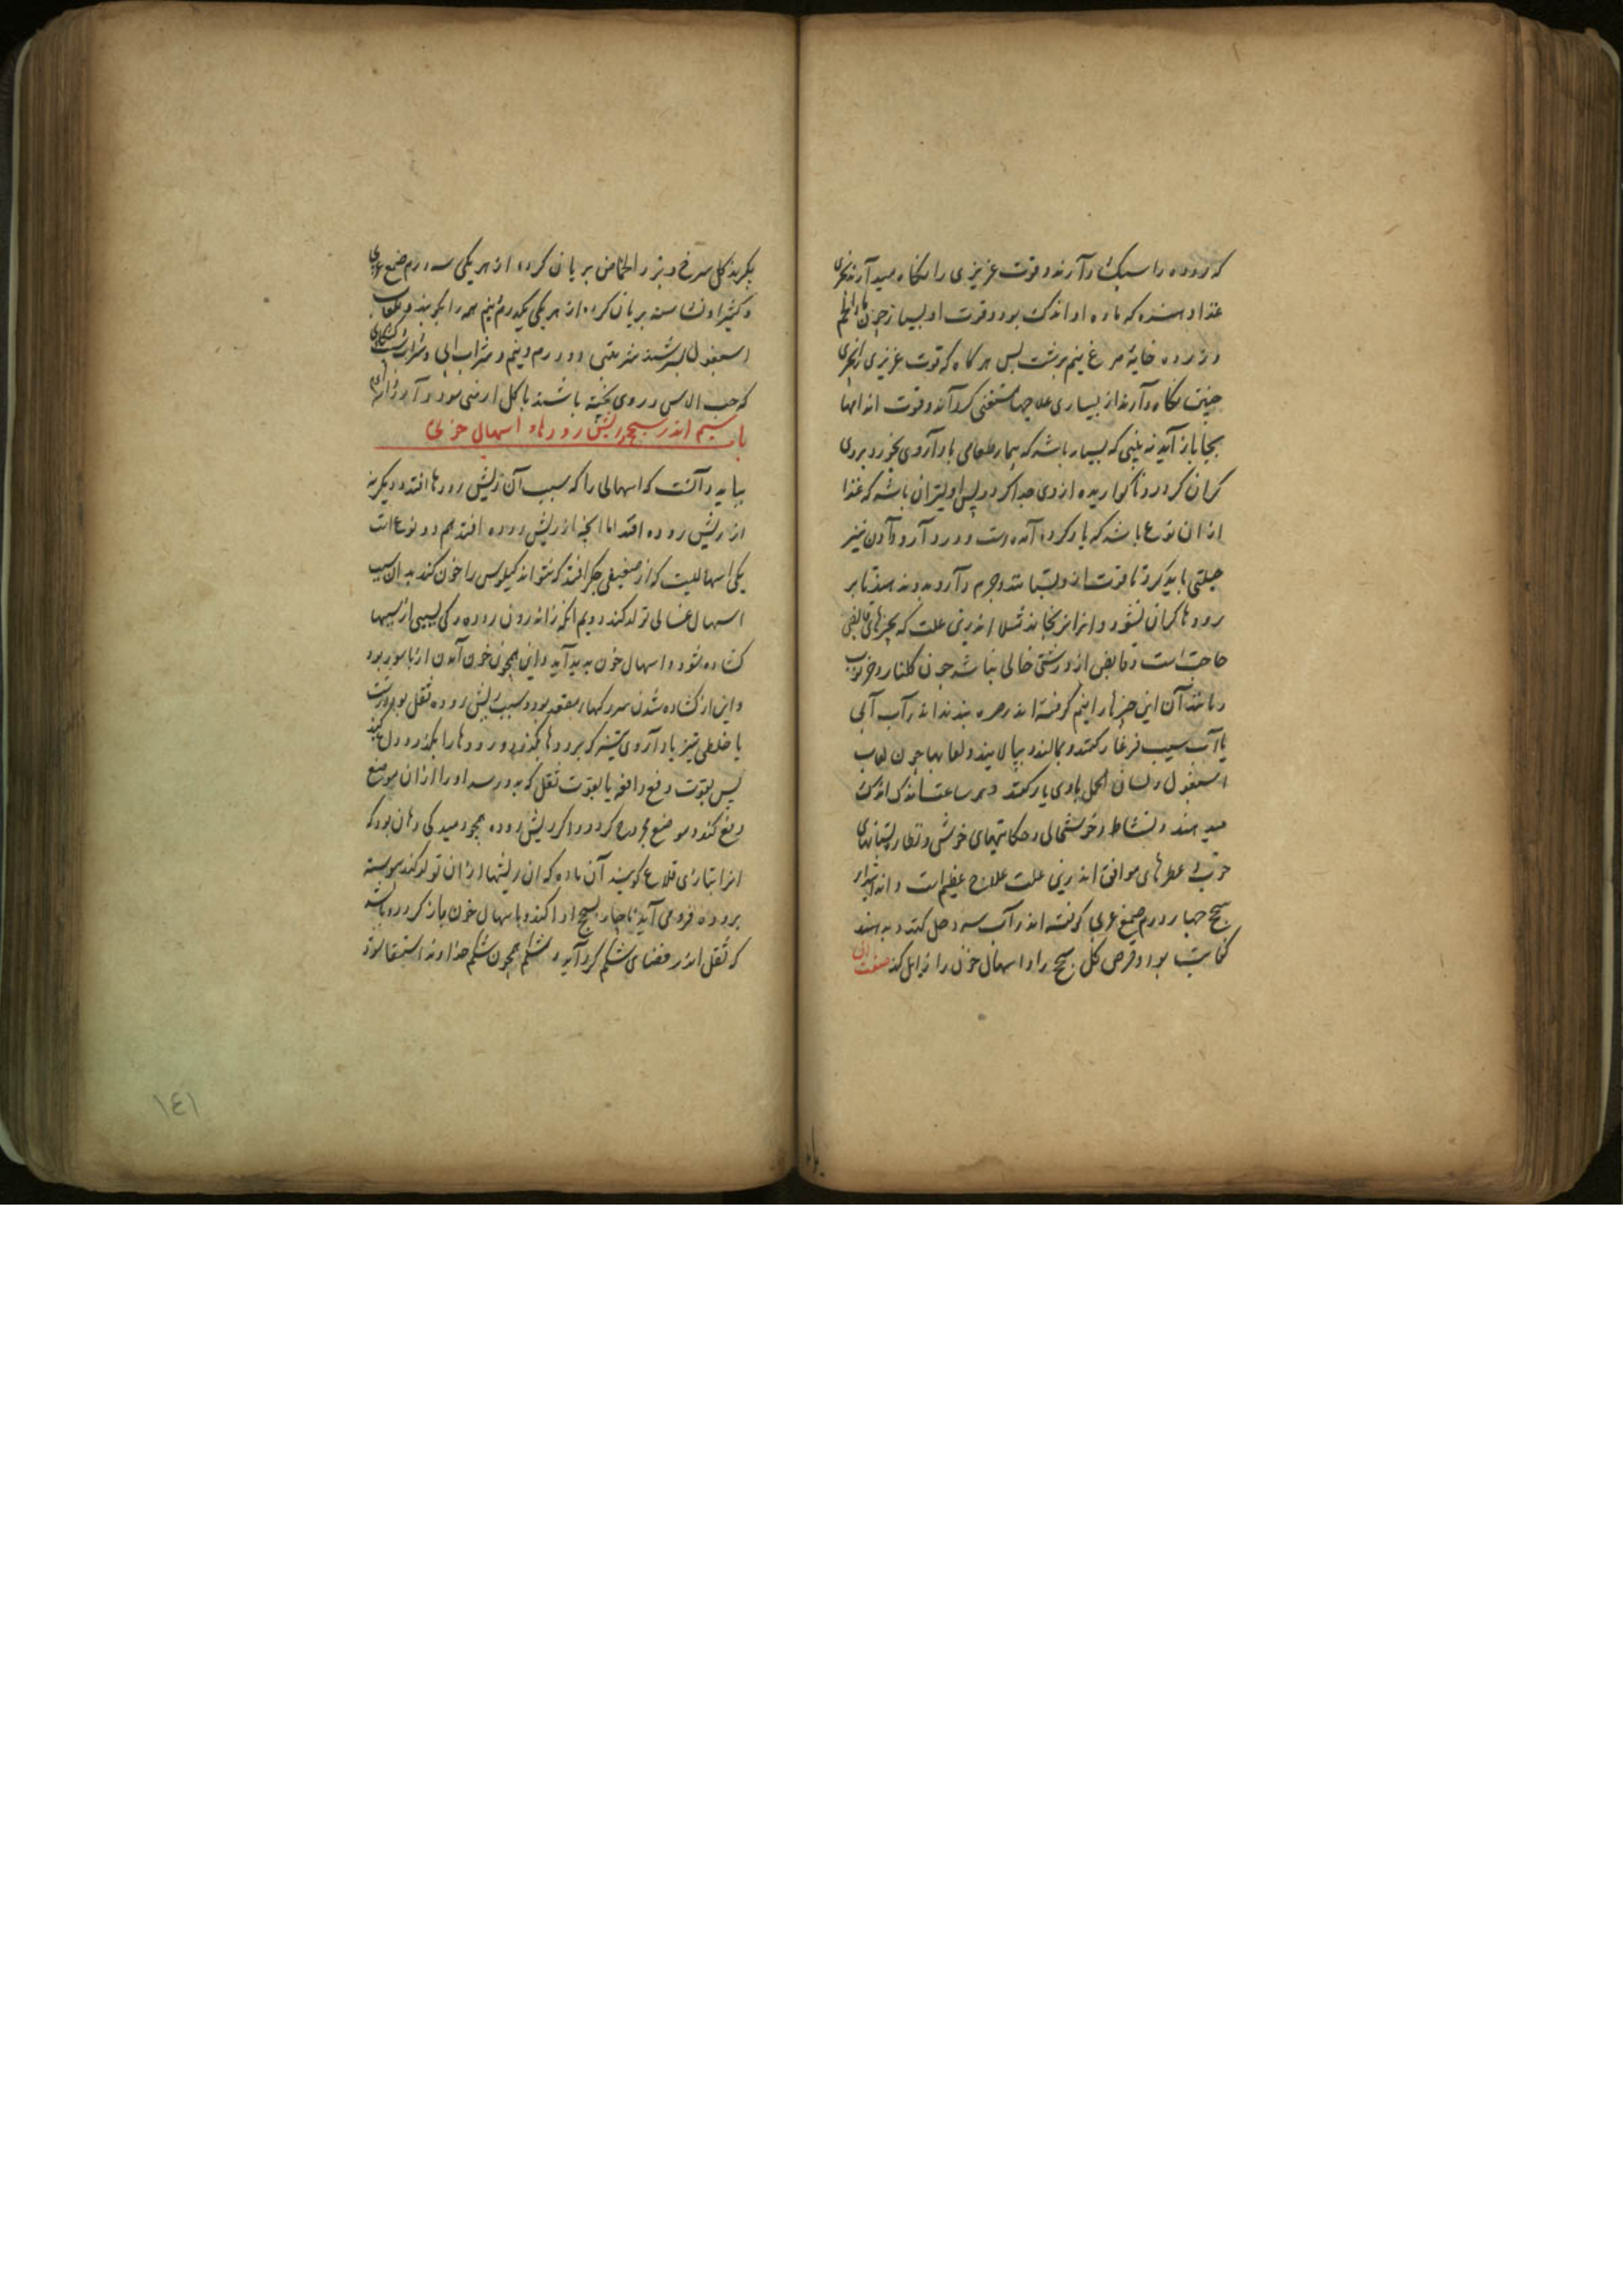 که روده را سبک دارند و قوت غریزی را نگاه میدارند
غذا دهند که ماده او اندک بود و قوت او بسیار چون
و زرده خایۀ مرغ نیم برشت پس هر گاه که قوت غریزی را
چنین نگاه دارند از بسیاری علاجها مستغنی گرداند و قوت اندامها
بجا باز آید نه بینی که بسیار باشد که بیمار طعامی یا داروی بخورد بروی
گران گردد و ناگواریده از وی جدا گردد پس اولیتر ان باشد که غذا
از ان نوع باشد که یاد کرده آمده است و در دارو دادن نیز
حیلتی باید کرد تا قوت او بستانند و جرم دارو بدو ندهند تا بر
رودها گران نشود و انرا نرنجاند مثلا اندرین علت که بچیزهای قابض
حاجت است و قابض از درشتی خالی نباشد چون گلنار و خرنوب
و مانند آن این چیزها را نیم کوفته اندر صره بندند اندر آب آبی
یا آب سیب فرغار کنند و بمالند و بپالایند و لعابها چون لعاب
اسبغول و لسان الحمل با وی یار کنند و هر ساعت اندک اندک
میدهند و نشاط و خوشحالی و حکایتهای خوش و نظاره بستانهای
خوش و عطرهای موافق اندرین علت علاج عظیم است و اندر ابتدای
سحج چهار درم صمغ عربی کوفته اندر آب سرد حل کنند و بدهند
کفایت بود و قرص گل سحج را و اسهال خون را زایل کند صفت ان
بگیرند گل سرخ و بزر الحماض بریان کرده از هر یکی سه درم صمغ عربی
و کثیرا و نشاسته بریان کرده از هر یکی یکدرم نیم همه را بکوبند و بلعاب
اسبغول بسرشند شربتی دو درم و نیم و شراب ابی و شراب
که حب الاس در وی پخته باشند با گل ارمنی سود دارد
باب سیم اندر سحج و ریش رودها و اسهال خونی
بباید دانست که اسهالی را که سبب آن ریش رودها افتد و دیگر نه
از ریش روده افتد اما انچه نه از ریش روده افتد هم دو نوع است
یکی اسهالیست که از ضعیفی جگر افتد که نتواند کیلوس را خون کند بدان سبب
اسهال غسالی تولد کند دویم انکه از اندرون روده رگی بسببی از سببها
گشاده شود و اسهال خون پدید آید و این همچون خون آمدن از باسور بود
و این از گشاده شدن سر رگهای مقعد بود و سبب ریش روده ثفل بود درشت
یا خلطی تیز یا داروی تیز که برودها بگذرد و رودها را
پس بقوت دفع دافعه یا بقوت ثفل که بدو رسد او را از ان موضع
دفع کند و موضع مجروح گردد و اگر ریش روده همچو دمیدگی دهان بود که
انرا بتازی قلاع گویند آن ماده که ان ریشها از ان تولد کند پیوسته
بروده فرو می آید ناچار بسحج ادا کند و با اسهال خون باز گردد و باشد
که ثفل اندر فضای شکم گرد آید و شکم همچون شکم خداوند استسقا شود
۱٤۱